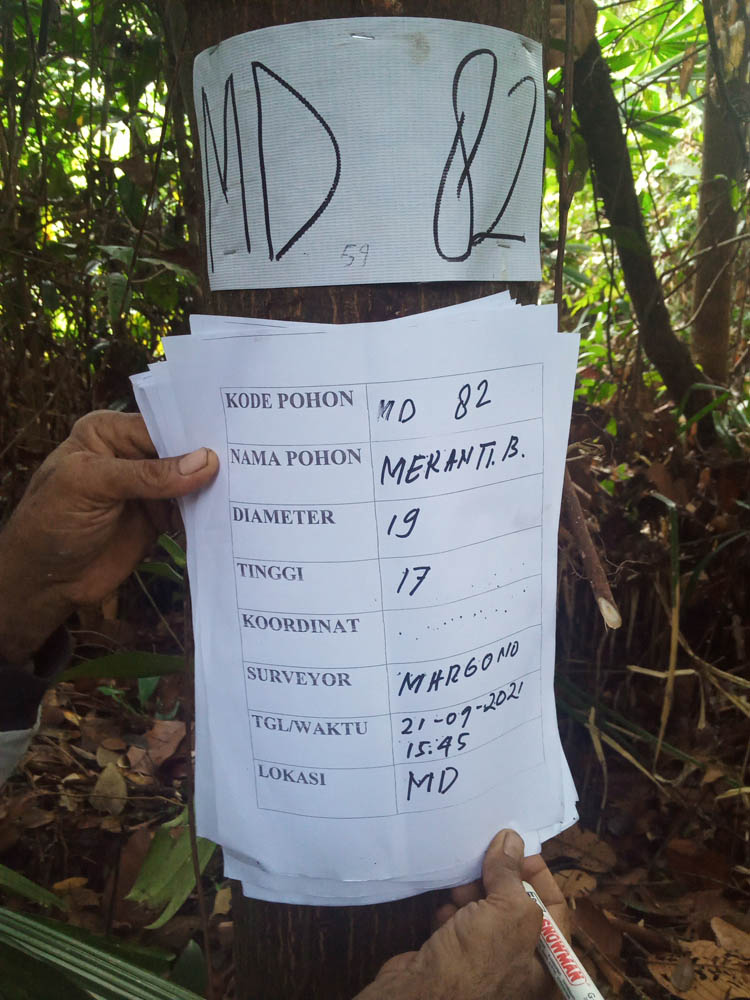 MD 82
59
KODE POHON MD 82
NAMA POHON MERANTI. B.
DIAMETER 19
TINGGI 17
KOORDINAT . . . . . . . . . .
SURVEYOR MARGONO
TGL/WAKTU 21-09-2021
15:45
LOKASI MD
SNOWMAN